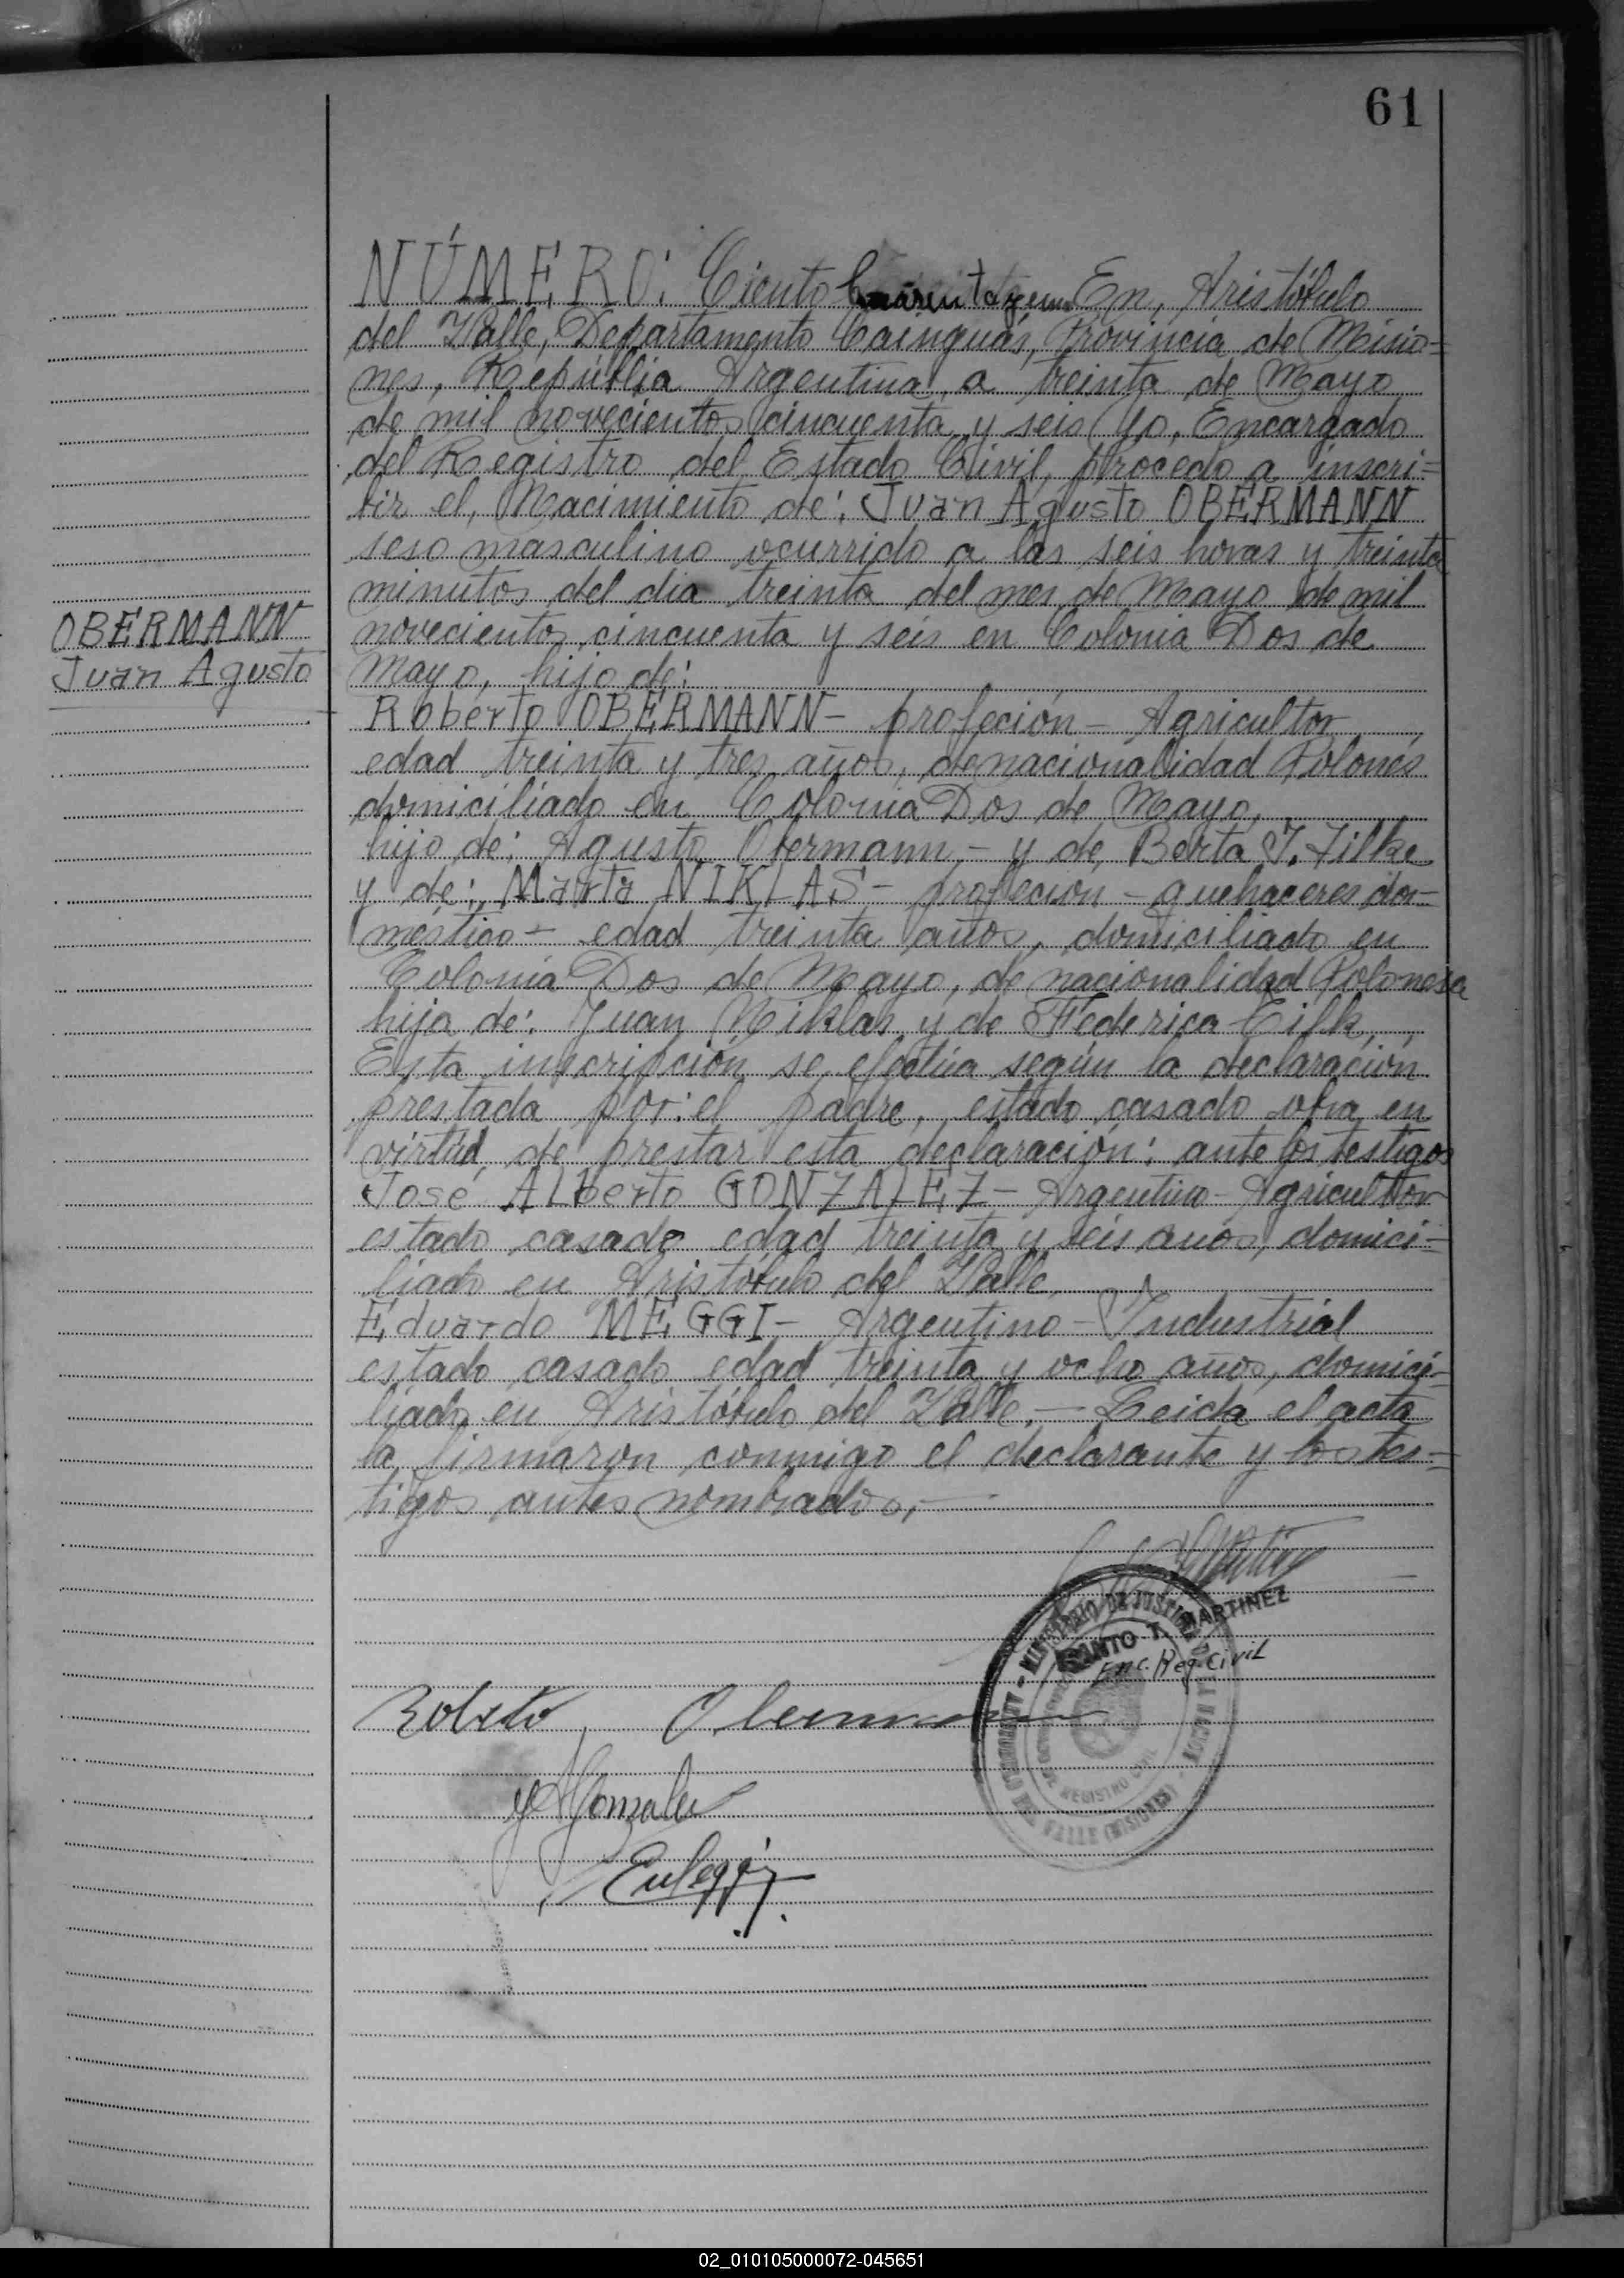 61
NÚMERO: Ciento Cuarenta y uno En, Aristóbulo
del Valle, Departamento Cainguás, Provincia de Misio=
nes, Repúblia Argentina, a treinta de Mayo
de mil novecientos cincuenta y seis Yo, Encargado
del Registro del Estado Civil, procedo a inscri=
bir el, Nacimiento de: Juan Agusto OBERMANN
seso masculino ocurrido a las seis horas y treinta
minutos del dia treinta del mes de Mayo de mil
OBERMANN
Juan Agusto
novecientos cincuenta y seis en Colonia Dos de
Mayo, hijo de:
Roberto OBERMANN - profeción - Agricultor
edad treinta y tres años, de nacionalidad Polonés
domiciliado en Colonia Dos de Mayo,
hijo de: Agusto Obermann, - y de Berta J. Filke
y de: Marta NIKLAS - profeción - quehaceres do-
méstico - edad treinta años, domiciliado en
Colonia Dos de Mayo, de nacionalidad Polonesa
hija de: Juan Niklas y de Federica Cilk,
Esta inscripción se efectúa según la declaración
prestada por: el padre, estado casado obra en
virtud de prestar esta declaración: ante los testigos
José ALberto GONZALEZ - Argentino - Agricultor
estado casado edad treinta y seis anos, domici-
liado en Aristóbulo del Valle,
Eduardo MEGGI - Argentino - Industrial
estado casado edad treinta y ocho años, domici-
liado en Aristóbulo del Valle, - Leida el acta
la firmaron conmigo el declarante y los tes=
tigos antes nombrados, -
SANTO T. MARTINEZ
Enc. Reg. Civil
Roberto Obermann
JAGonzalez
EMeggi
REGISTRO CIVIL
DEL VALLE (MISIONES)
02_010105000072-045651